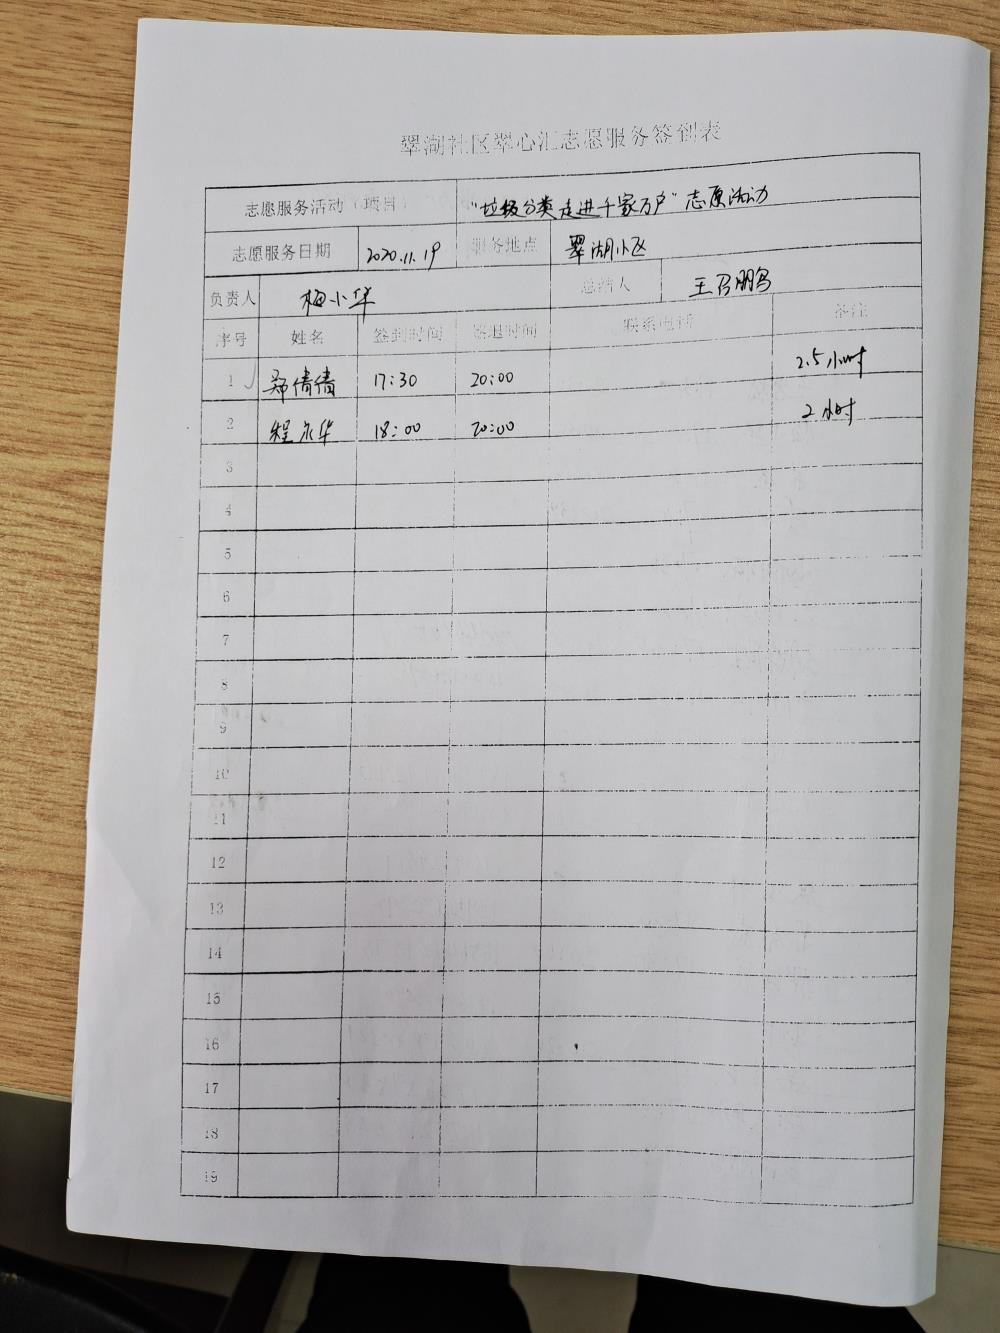 翠湖社区翠心汇志愿服务签到表
志愿服务活动（项目） "垃圾分类走进千家万户"志愿活动
志愿服务日期 2020.11.19 服务地点 翠湖小区
负责人 梅小华 总结人
序号 姓名 签到时间 签退时间 联系电话 备注
1 郑倩倩 17:30 20:00 2.5小时
2 程永华 18:00 20:00 2小时
3
4
5
6
7
8
9
10
11
12
13
14
15
16
17
18
19